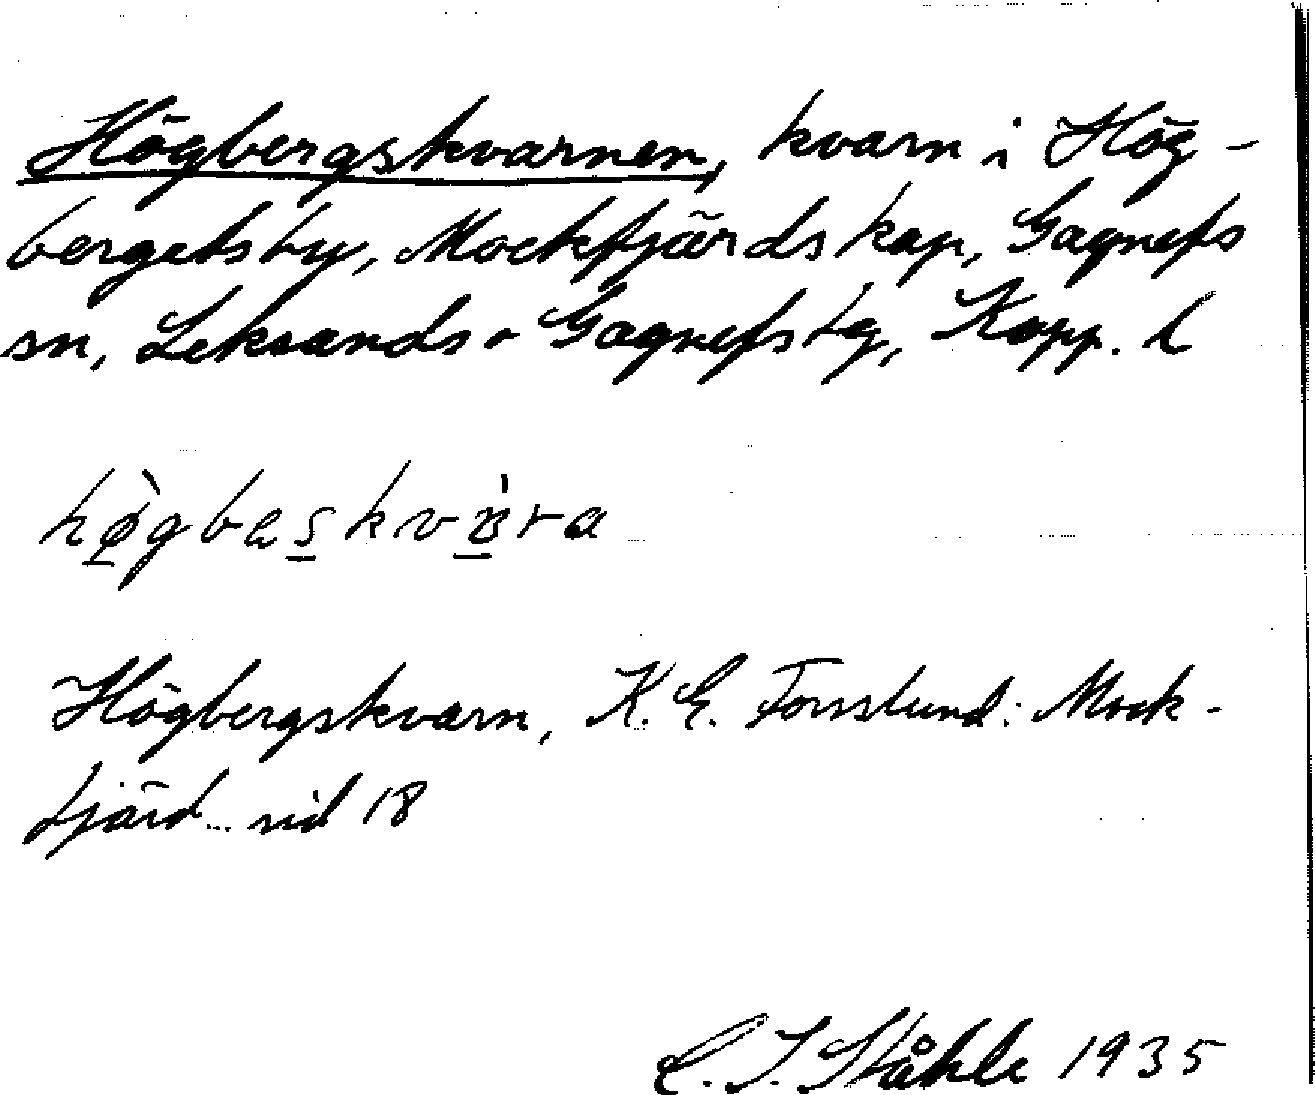 Högbergskvarnen, kvarn i Hög-
bergets by, Mockfjärds kap, Gagnefs
sn, Leksands o Gagnefs tg, Kopp. l
Högbergskvarn, K. E. Forsslund: Mock-
fjärd.. sid 18
C. I. Ståhle 1935